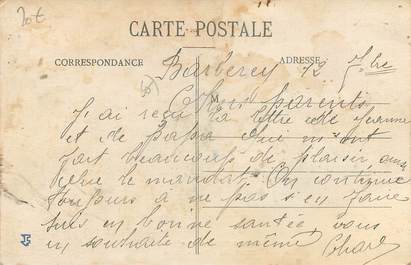 20€
CARTE POSTALE
CORRESPONDANCE
ADRESSE
Barberey 12 7bre
M
Chers parents
J'ai reçu la lettre de Jeanne
et de papa qui m'ont
fait beaucoup de plaisir, ainsi
que le mandat. On continue
toujours à ne pas s'en faire
suis en bonne santée, vous
en souhaite de même